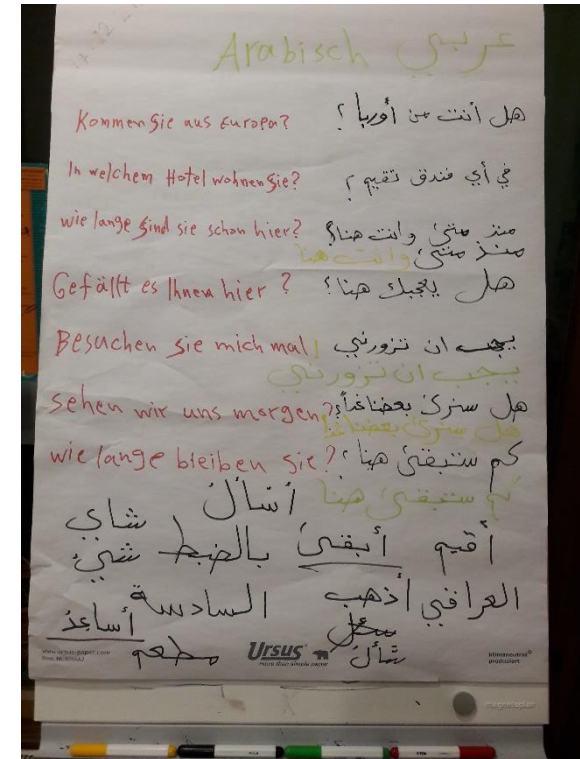 Arabisch عربي
Kommen Sie aus Europa? هل أنت من أوربا؟
In welchem Hotel wohnen Sie? في أي فندق تقيم؟
wie lange sind sie schon hier? منذ متىٰ وانت هنا؟
منذ متىٰ وانت هنا
Gefällt es Ihnen hier? هل يعجبك هنا؟
Besuchen sie mich mal! يجب ان تزورني
يجب ان تزورني
sehen wir uns morgen? هل سنرىٰ بعضنا غداً؟
هل سنرىٰ بعضنا غداً
wie lange bleiben sie? كم ستبقىٰ هنا؟
كم ستبقىٰ هنا
أسأل شاي
أقيم أبقىٰ بالضبط شيء
العراقي أذهب السادسة أساعد
سأل مطعم
Ursus
more than simple paper
www.ursus-paper.com
klimaneutral produziert
magnetoplan